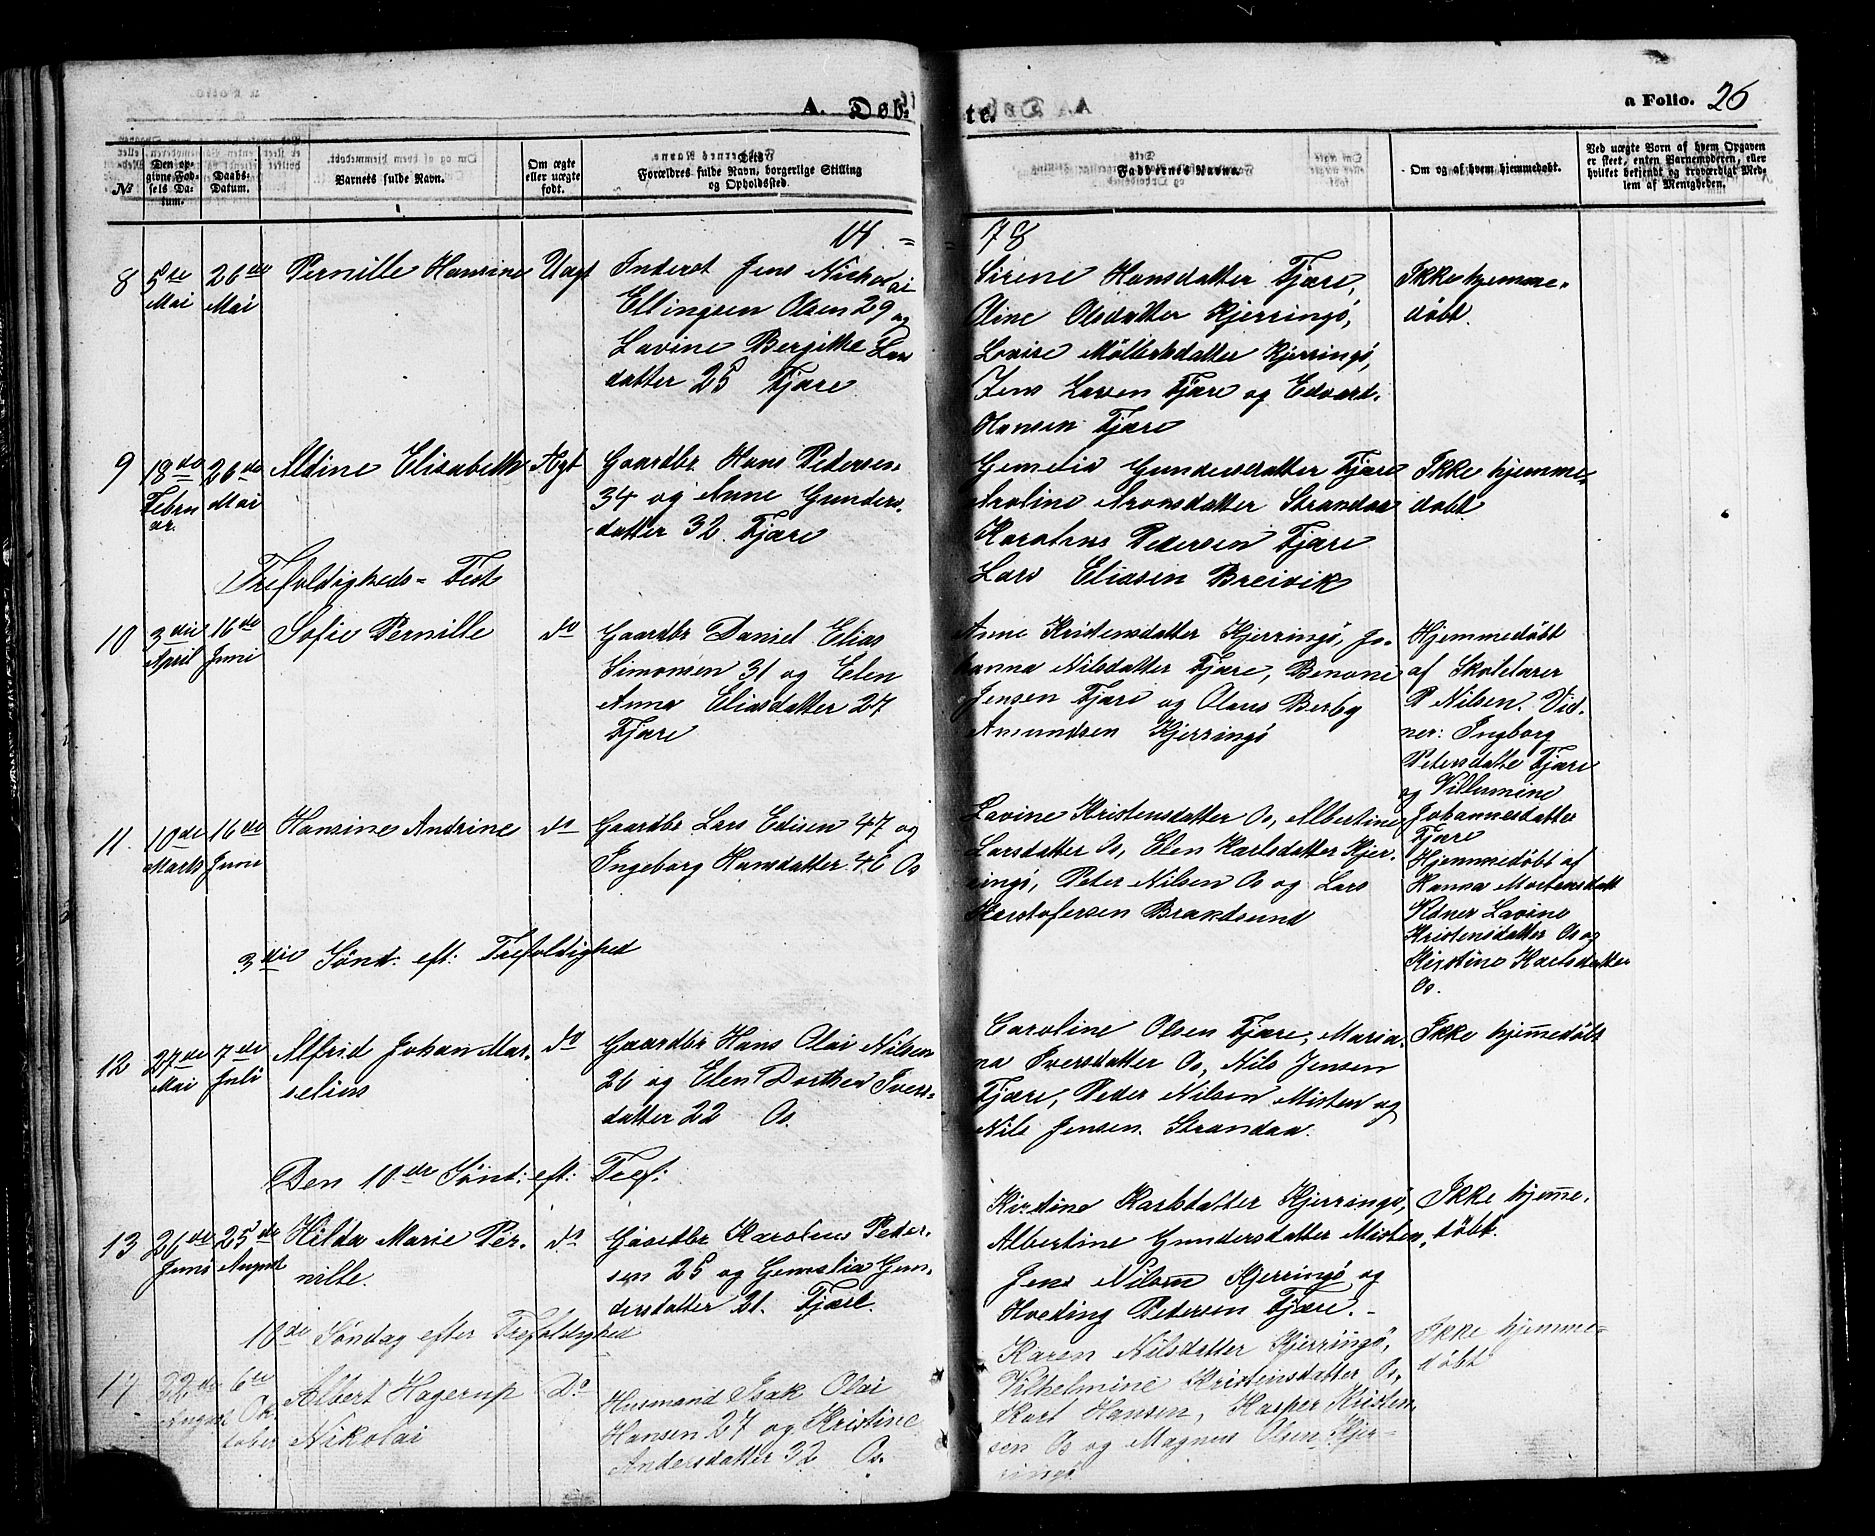 A. Døb-
te.
a Folio. 26
No
Den op-
givne Fød-
sels Da-
tum.
Daabs-
Datum.
Barnets fulde Navn.
Om ægte
eller uægte
født.
Dets
Forældres fulde Navn, borgerlige Stilling
og Opholdssted.
Faddernes Navne.
Om og af hvem hjemmedøbt.
Ved uægte Børn af hvem Opgaven
er skeet, enten Barnemoderen, eller
hvilket bekjendt og troværdigt Med-
lem af Menigheden.
18 = 78
8
5te
Mai
26de
Mai
Pernille Hansine
Uægt
Inderst Jens Nickolai
Ellingsen Olsen 29 og
Lavine Bergitte Lars
datter 25 Fjære
Sirene Hansdatter Fjære,
Oline Olsdatter Kjerringö,
Lovise Möllersdatter Kjerringö,
Jens Larsen Fjære og Edvard
Hansen Fjære
Ikke hjemme-
döbt.
9
18de
Febru
ar.
26de
Mai
Aldine Elisabeth
Ægt
Gaardbr Hans Pedersen
34 og Anne Gunders-
datter 32. Fjære
Gemelia Gundersdatter Fjære
Aroline Aronsdatter Strandaa
Karolius Pedersen Fjære
Lars Eliasen Breivik
Ikke hjemme-
döbt
Trefoldigheds-Fest
10
3die
April
16de
Juni
Sofie Pernille
do
Gaardbr Daniel Elias
Simonsen 31 og Elen
Anna Eliasdatter 27
Fjære
Anne Kristensdatter Kjerringö, Jo-
hanna Nilsdatter Fjære, Benone
Jensen Fjære og Olaus Berby
Amundsen Kjerringö
Hjemmedöbt
af Skolelærer
P Nilsen. Vid-
ner: Ingborg
Petersdatte Fjære
og Villumine
Johannesdatter
Fjære
11.
10de
Marts
16de
Juni
Hansine Andrine
do
Gaardbr Lars Edisen 47 og
Ingeborg Hansdatter 46 Os
Lavine Kristensdatter Os, Albertine
Larsdatter Os, Elen Karlsdatter Kjer-
ringö, Peter Nilsen Os og Lars
Kristofersen Brandsund
Hjemmedöbt af
Hanna Mortensdatt
Vidner Lavine
Kristensdatter Os og
Kirstine Karlsdatter
Os.
3die Sönd: eft: Trefoldighed
12
27de
Mai
7de
Juli
Alfrid Johan Mar-
selius
do
Gaardbr Hans Olai Nilsen
26 og Elen Dorthea Ivers-
datter 22 Os.
Caroline Olsen Fjære, Maria-
na Iversdatter Os, Nils Jensen
Fjære, Peder Nilsen Misten og
Nils Jensen. Strandaa.
Ikke hjemedöbt
Den 10de Sönd: eft: Tref:
13
26de
Juni
25de
August
Hilda Marie Per-
nille.
do
Gaardbr Karolius Peder-
sen 25 og Gemelia Gun-
dersdatter 21. Fjære.
Kirstine Karlsdatter Kjerringö,
Albertine Gundersdatter Misten,
Jens Nilsen Kjerringö og
Hveding Pedersen Fjære.
Ikke hjeme-
döbt.
10de Söndag efter Trefoldighed
17
22de
August
6te
Ok-
tober
Albert Hagerup
Nikolai
Do
Husmand Isak Olai
Hansen 27 og Kristine
Andersdatter 32 Os.
Karen Nilsdatter Kjerringö,
Vilhelmine Kristensdatter Os,
Kart Hansen, Kasper Kristen-
sen Os og Magnus Olsen Kjer-
ringö
Ikke hjemme-
döbt